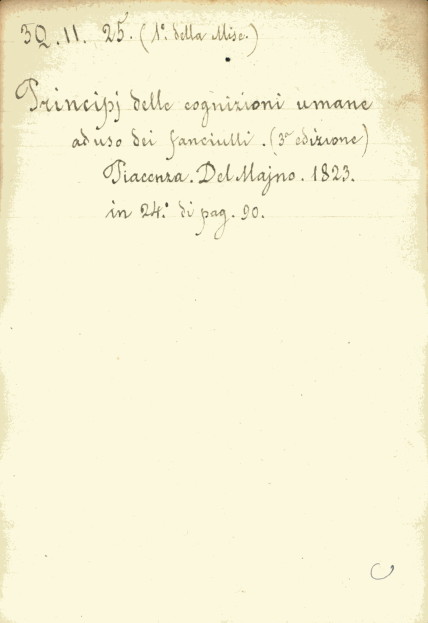 3Q. 11. 25. (1º. della Misc.)
Principj delle cognizioni umane
ad uso dei fanciulli. (3ª edizione)
Piacenza. Del Majno. 1823.
in 24.º di pag. 90.